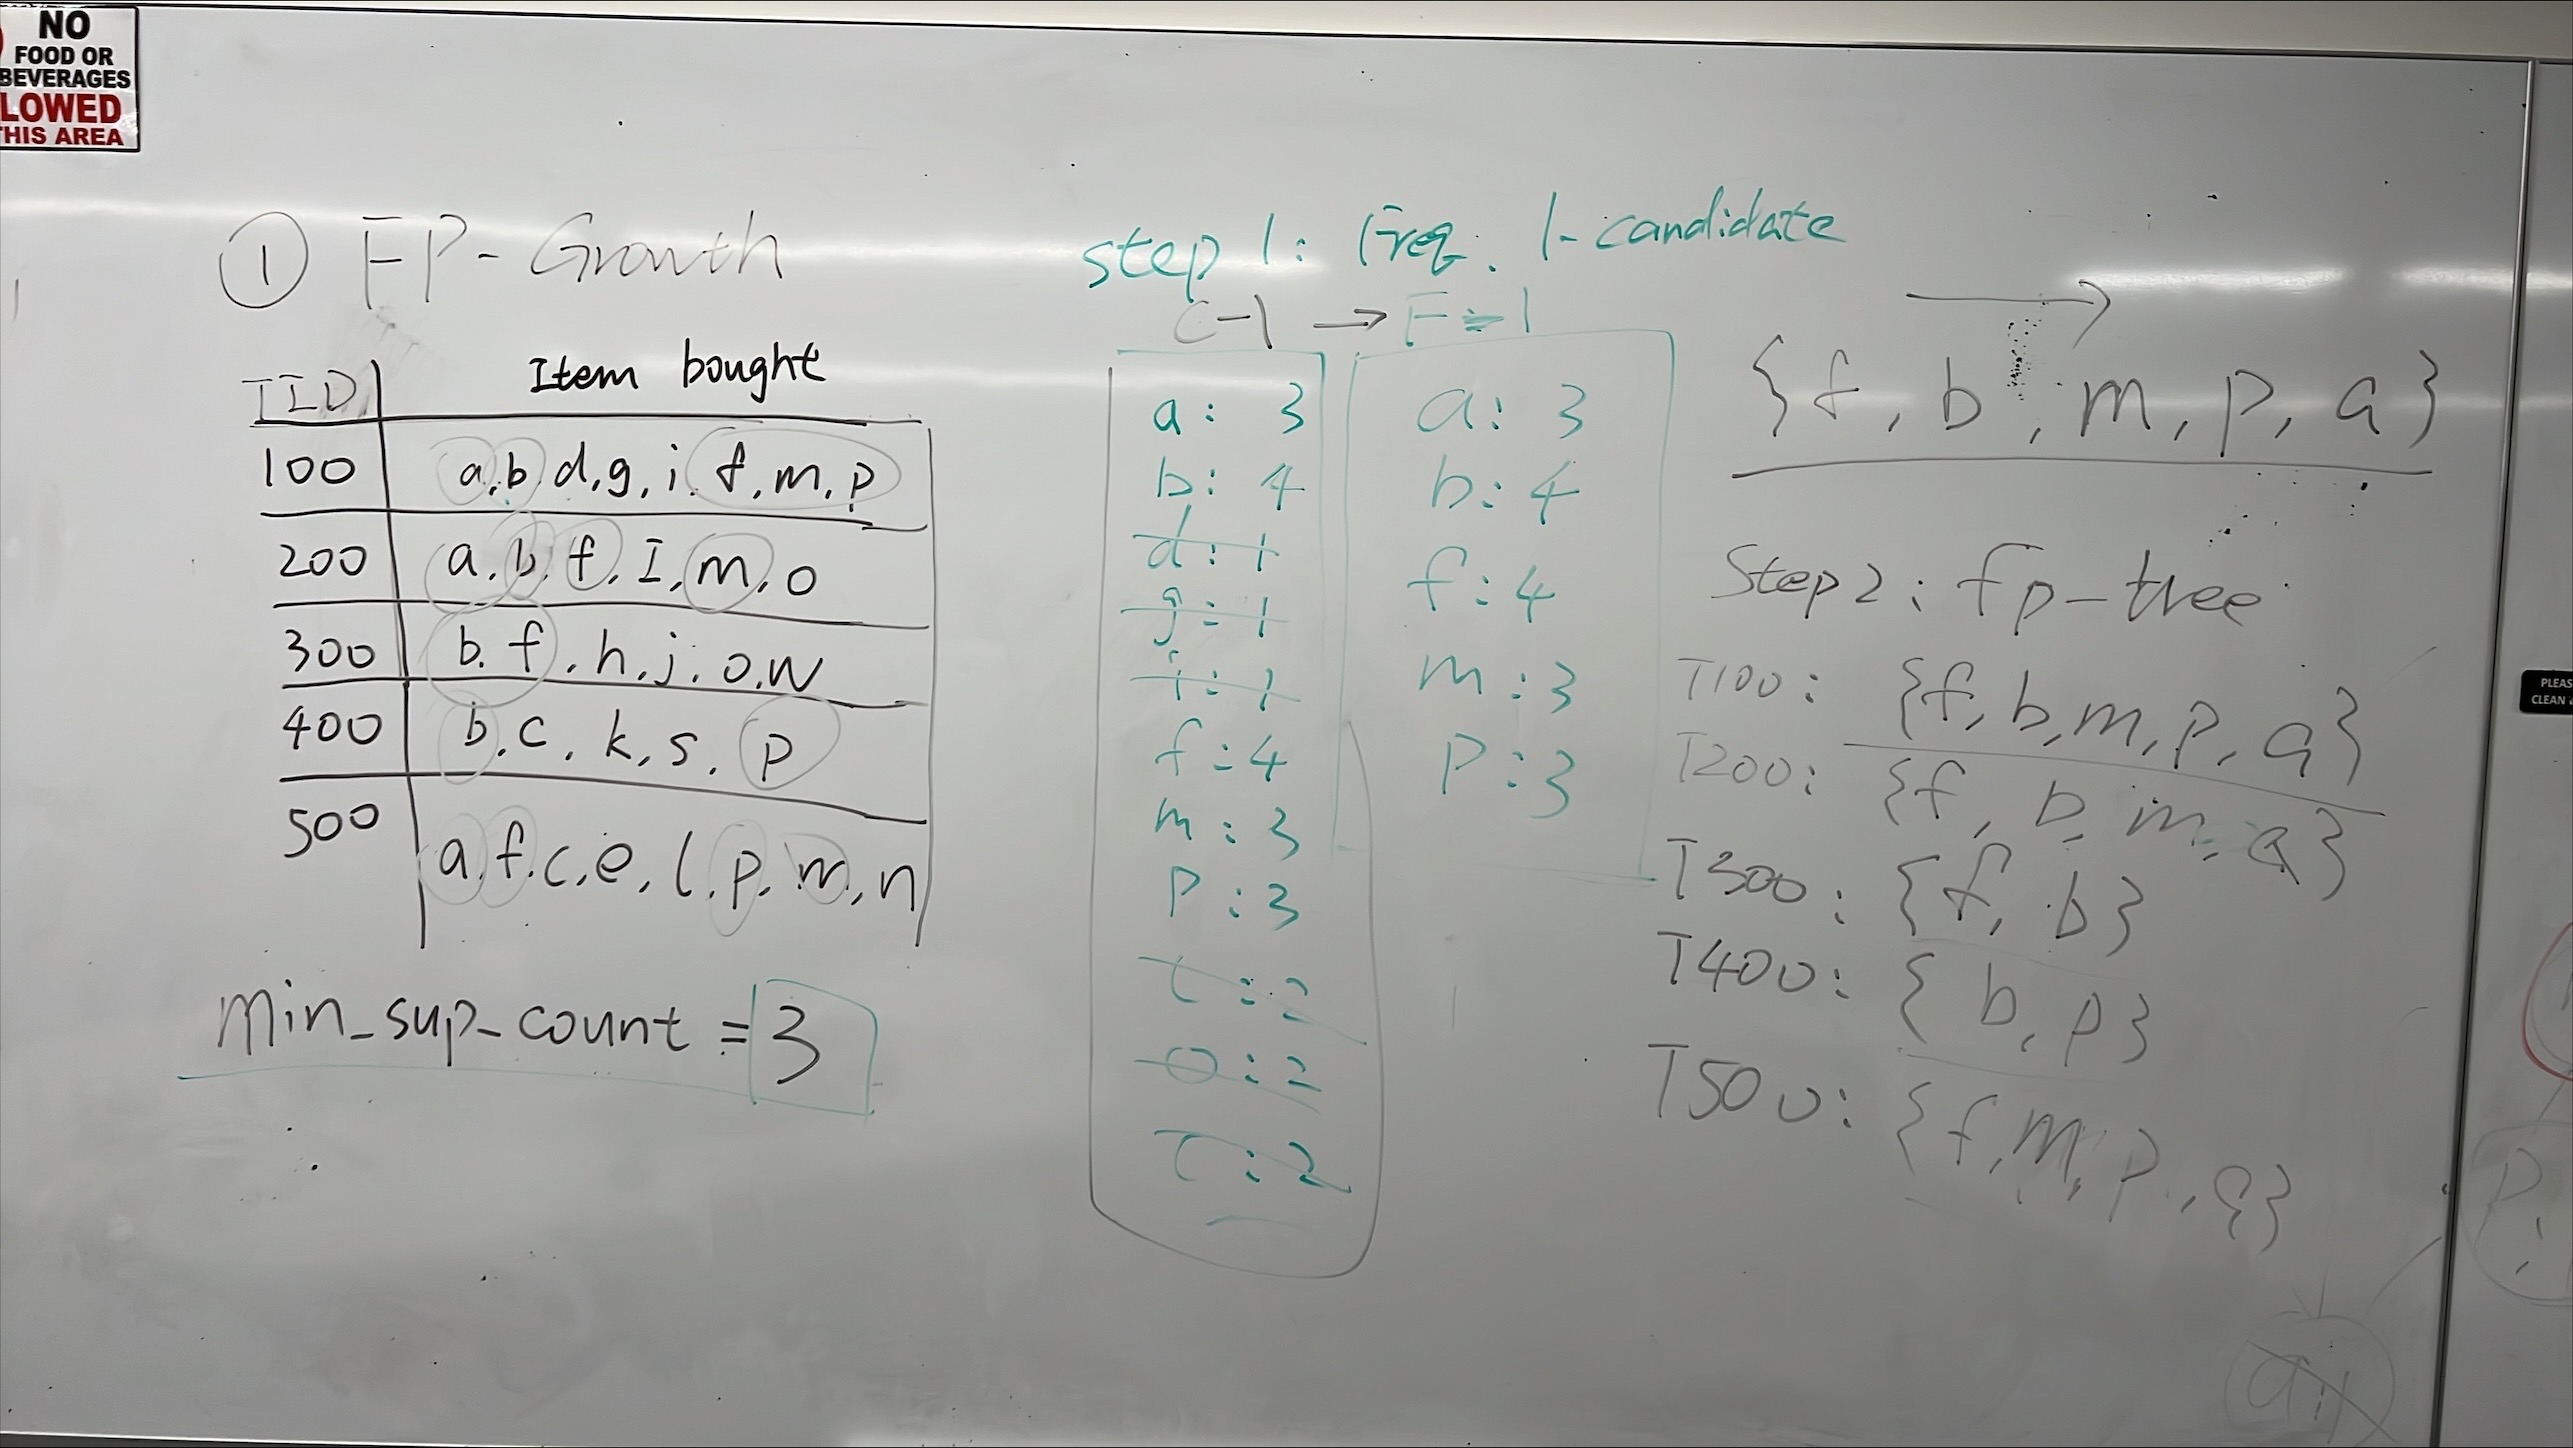 NO
FOOD OR
BEVERAGES
LOWED
THIS AREA
① FP-Growth
TID Item bought
100 a, b, d, g, i, f, m, p
200 a, b, f, I, m, o
300 b, f, h, j, o, w
400 b, c, k, s, p
500 a, f, c, e, l, p, m, n
min_sup_count = 3
step 1: Freq. 1-candidate
C-1 → F=1
a: 3
b: 4
d: 1
g: 1
i: 1
f: 4
m: 3
p: 3
o: 2
a: 3
b: 4
f: 4
m: 3
p: 3
{f, b, m, p, a}
Step 2: fp-tree
T100: {f, b, m, p, a}
T200: {f, b, m, a}
T300: {f, b}
T400: {b, p}
T500: {f, m, p, a}
PLEAS
CLEAN